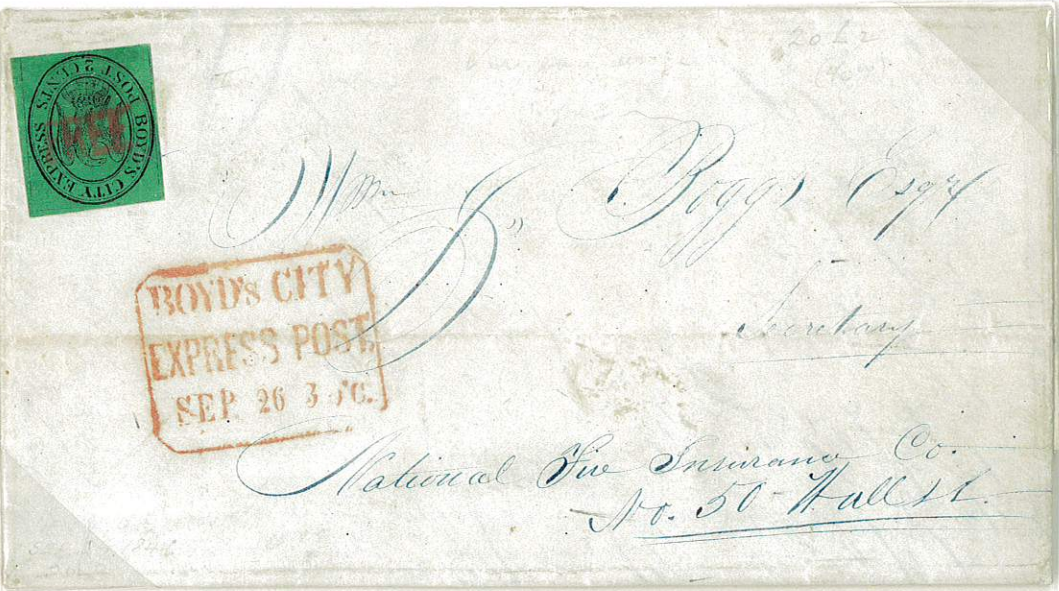 20L2
BOYD'S CITY EXPRESS POST 2 CENTS
FREE
Wm J. Boggs Esqr
BOYD'S CITY
EXPRESS POST.
SEP. 26 3
Secretary
National Fire Insurance Co.
No. 50 Wall st.